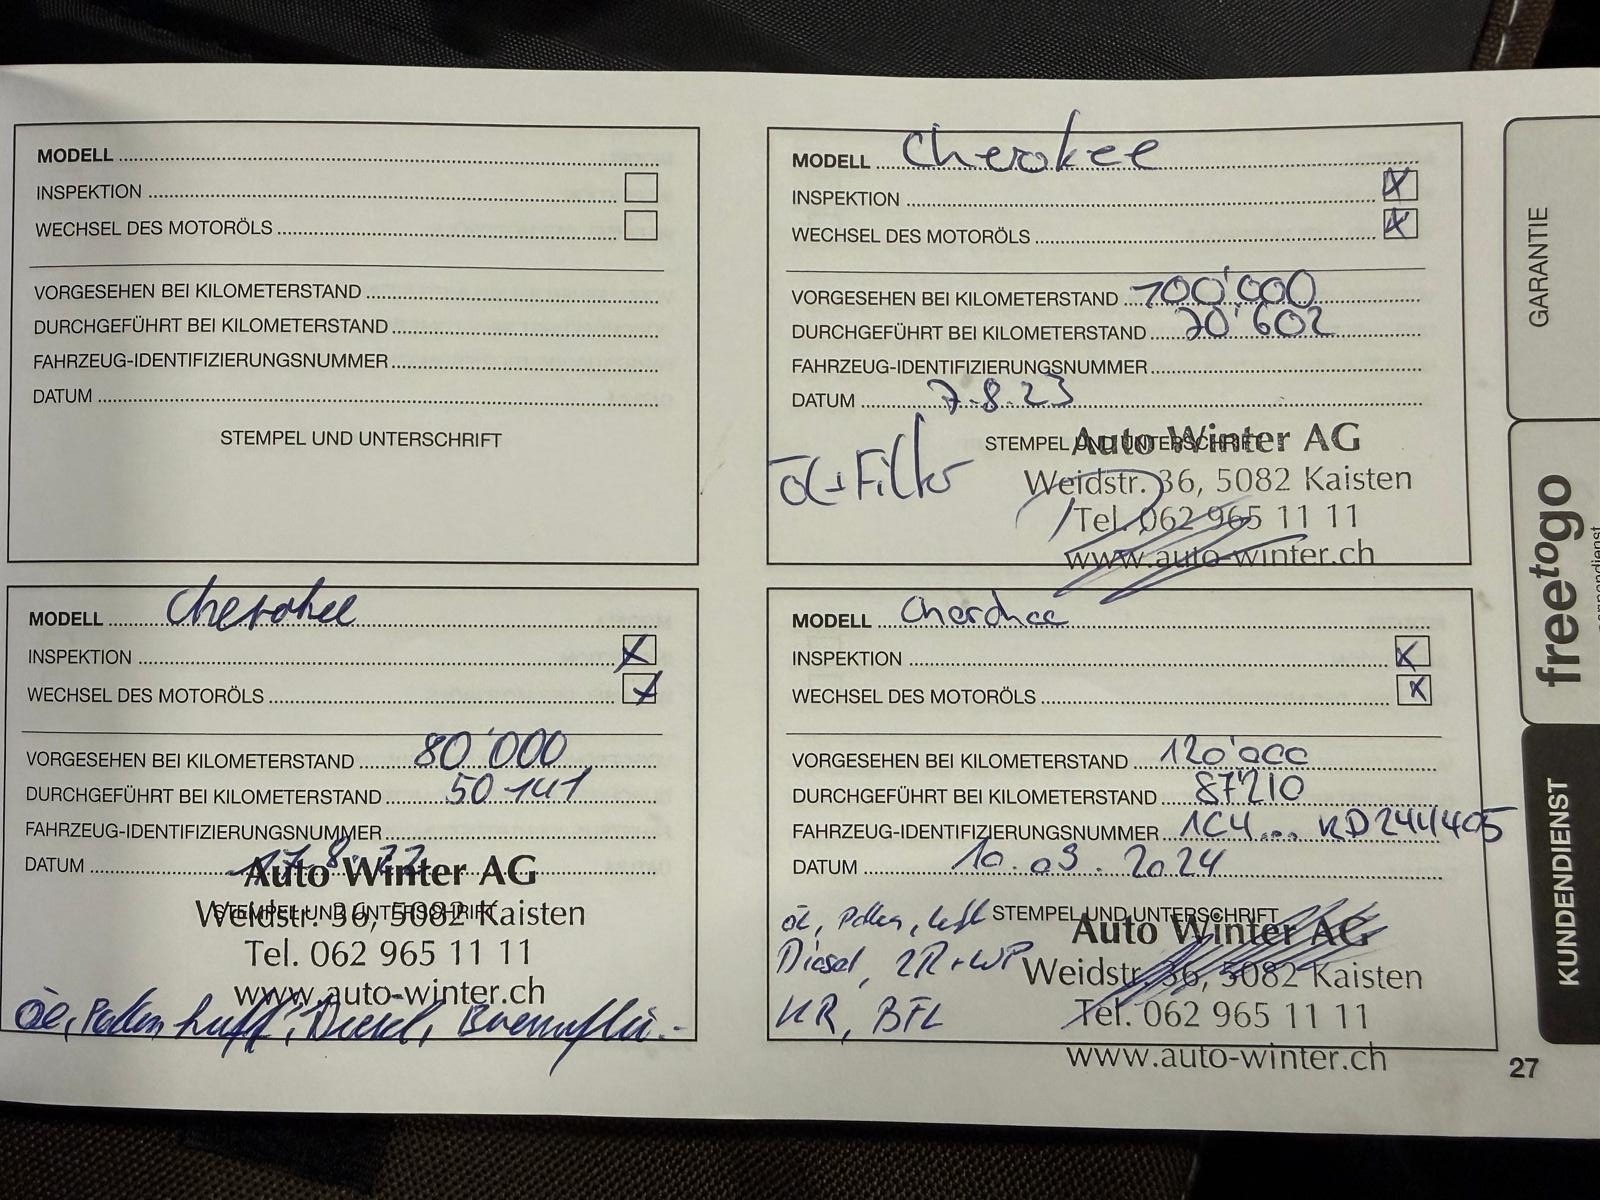 MODELL
INSPEKTION
WECHSEL DES MOTORÖLS
VORGESEHEN BEI KILOMETERSTAND
DURCHGEFÜHRT BEI KILOMETERSTAND
FAHRZEUG-IDENTIFIZIERUNGSNUMMER
DATUM
STEMPEL UND UNTERSCHRIFT
MODELL Cherokee
INSPEKTION X
WECHSEL DES MOTORÖLS X
VORGESEHEN BEI KILOMETERSTAND 80'000
DURCHGEFÜHRT BEI KILOMETERSTAND 50 141
FAHRZEUG-IDENTIFIZIERUNGSNUMMER
DATUM 17.8.22
Auto Winter AG
STEMPEL UND UNTERSCHRIFT
Weidstr. 36, 5082 Kaisten
Tel. 062 965 11 11
www.auto-winter.ch
Öl, Pollen, Luft, Diesel,
MODELL Cherokee
INSPEKTION X
WECHSEL DES MOTORÖLS X
VORGESEHEN BEI KILOMETERSTAND 100'000
DURCHGEFÜHRT BEI KILOMETERSTAND 70'602
FAHRZEUG-IDENTIFIZIERUNGSNUMMER
DATUM 7.8.23
STEMPEL UND UNTERSCHRIFT
Auto Winter AG
Öl + Filter
Weidstr. 36, 5082 Kaisten
Tel. 062 965 11 11
www.auto-winter.ch
MODELL Cherokee
INSPEKTION X
WECHSEL DES MOTORÖLS X
VORGESEHEN BEI KILOMETERSTAND 120'000
DURCHGEFÜHRT BEI KILOMETERSTAND 87'210
FAHRZEUG-IDENTIFIZIERUNGSNUMMER 1C4... KD244405
DATUM 10.09.2024
STEMPEL UND UNTERSCHRIFT
Öl, Pollen, Luft
Auto Winter AG
Diesel, ZR + WP
Weidstr. 36, 5082 Kaisten
KR, BFL
Tel. 062 965 11 11
www.auto-winter.ch
27
GARANTIE
freetogo
KUNDENDIENST